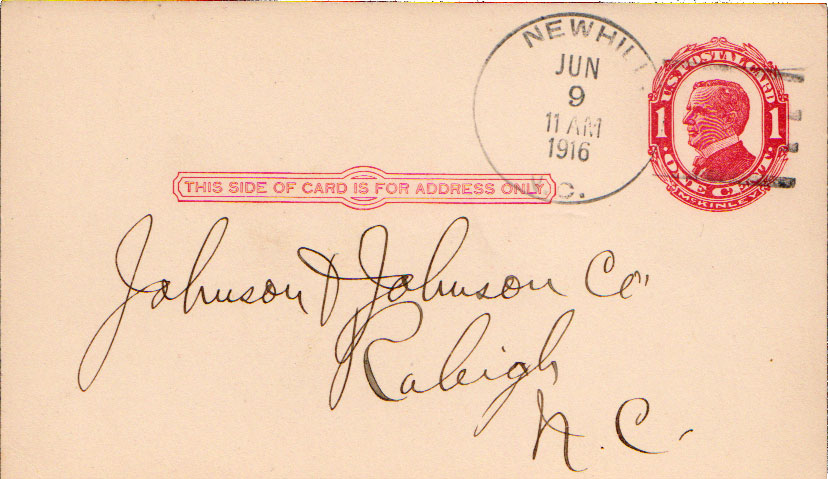 NEWHILL
JUN
9
11 AM
1916
N.C.
U.S. POSTAL CARD
1 1
ONE CENT
McKINLEY
THIS SIDE OF CARD IS FOR ADDRESS ONLY
Johnson & Johnson Co.
Raleigh
N.C.